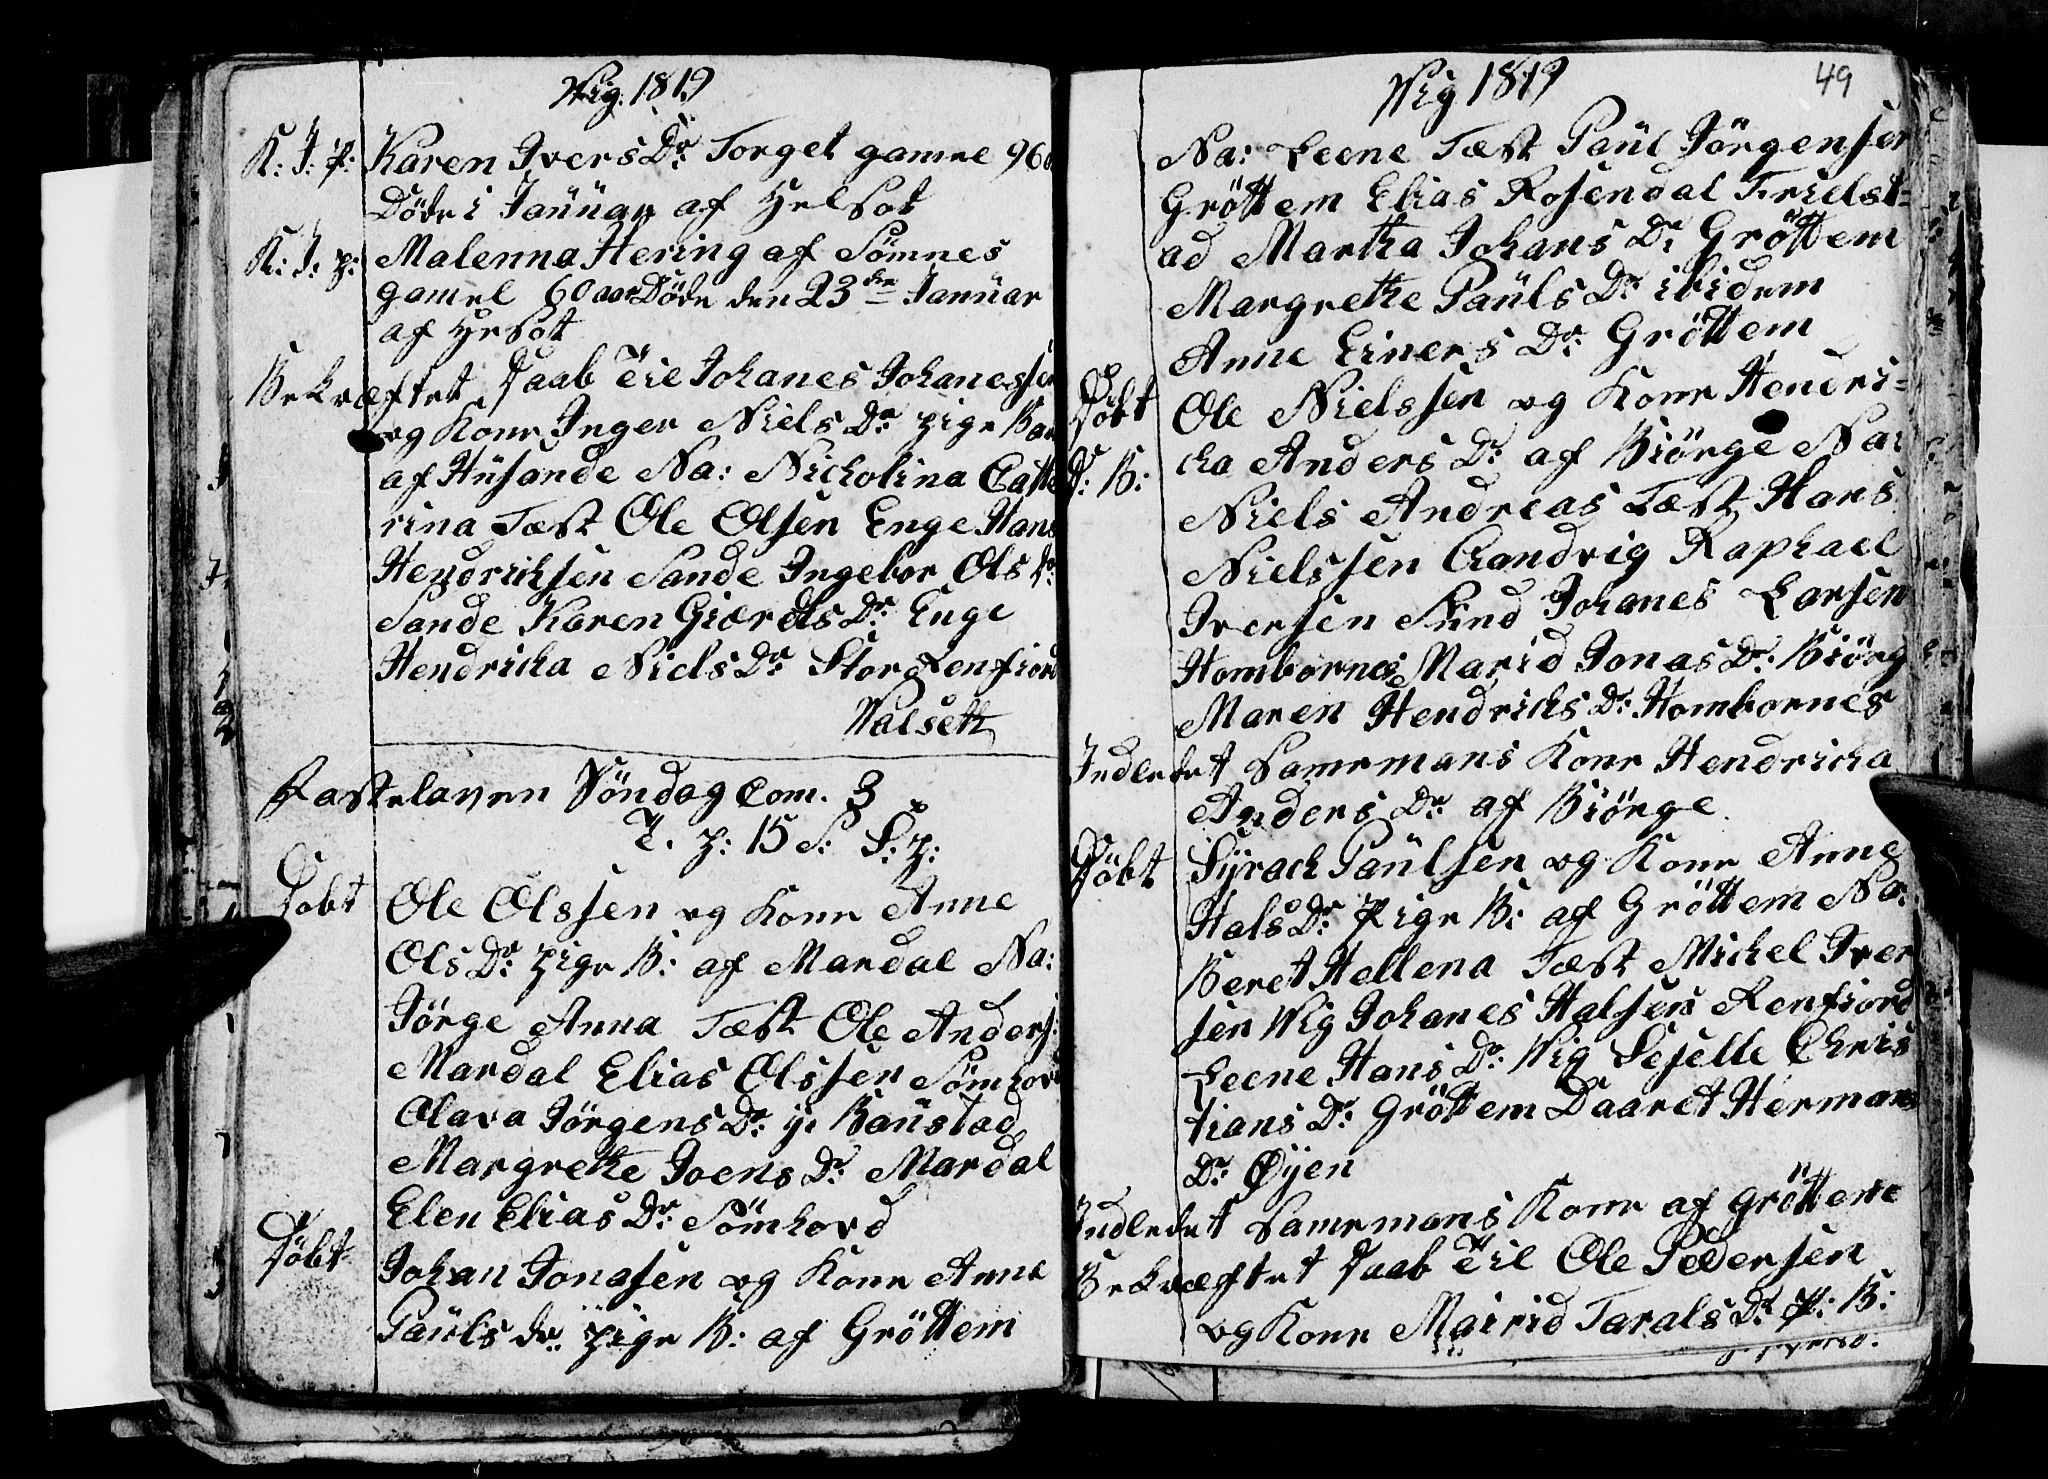 Wig. 1819
K: J: p: Karen Ivers Dr: Torget gamel 96
Döde i Januar af Helsot
K: J: p: Malenna Hering af Sömnes
gamel 60 aar Döde den 23de Januar
af Hrsot
Bekræftet Daab Til Johanes Johanessen
og Kone Inger Niels Dr pige Bar
af Husande Na: Nicholina Catte
rina Tæst Ole Olsen Enge Hans
Hendrichsen Sande Ingebor Ols Dr:
Sande Karen Giærdts Dr: Enge
Hendricha Niels Dr: Stor Lenfiord
Walseth
Fastelaven Söndag Com. 3
T. p: 15 S: S: p:
Döbt Ole Olssen og Kone Anne
Ols Dr: pige B: af Mardal Na:
Jørge Anna Tæst Ole Anders:
Mardal Elias Olssen Sömhovd
Olava Jörgens Dr: y: Baustad
Margrethe Joens Dr: Mardal
Elen Elias Dr: Sömhovd
Döbt Johan Jonasen og Kone Anna
Pauls dr: pige B: af Gröttem
Wig 1819 49
Na: Leene Tæst Paul Jörgensen
Gröttem Elias Rosendal Trielst=
ad Martha Johans Dr Gröttem
Margrethe Pauls Dr ibidem
Anne Einers Dr: Gröttem
Döbt Ole Nielssen og Kone Hendri=
D: B: cha Anders Dr: af Biörge Na:
Niels Andreas Tæst Hans
Nielssen Aandvig Raphael
Iversen Sund Johanes Larsen
Hombornes Marid Jonas Dr: Biörg
Maren Hendrichs Dr: Hombornes
Indledet Sammemans Kone Hendricha
Anders Dr af Biörge.
Döbt Syrach Paulsen og Kone Anne
Hals Dr: Pige B: af Gröttem Na:
Beret Hellena Tæst Michel Iver
sen Wig Johanes Halsen Renfiord
Leene Hans Dr: Wig Seselle Chris
tians Dr: Gröttem Daaret Hermans
Dr: Øyen
Indledet Sammemans Kone af Gröttem
Bekræftet Daab Til Ole Pedersen
og Kone Mairid Tarals Dr. P: B: